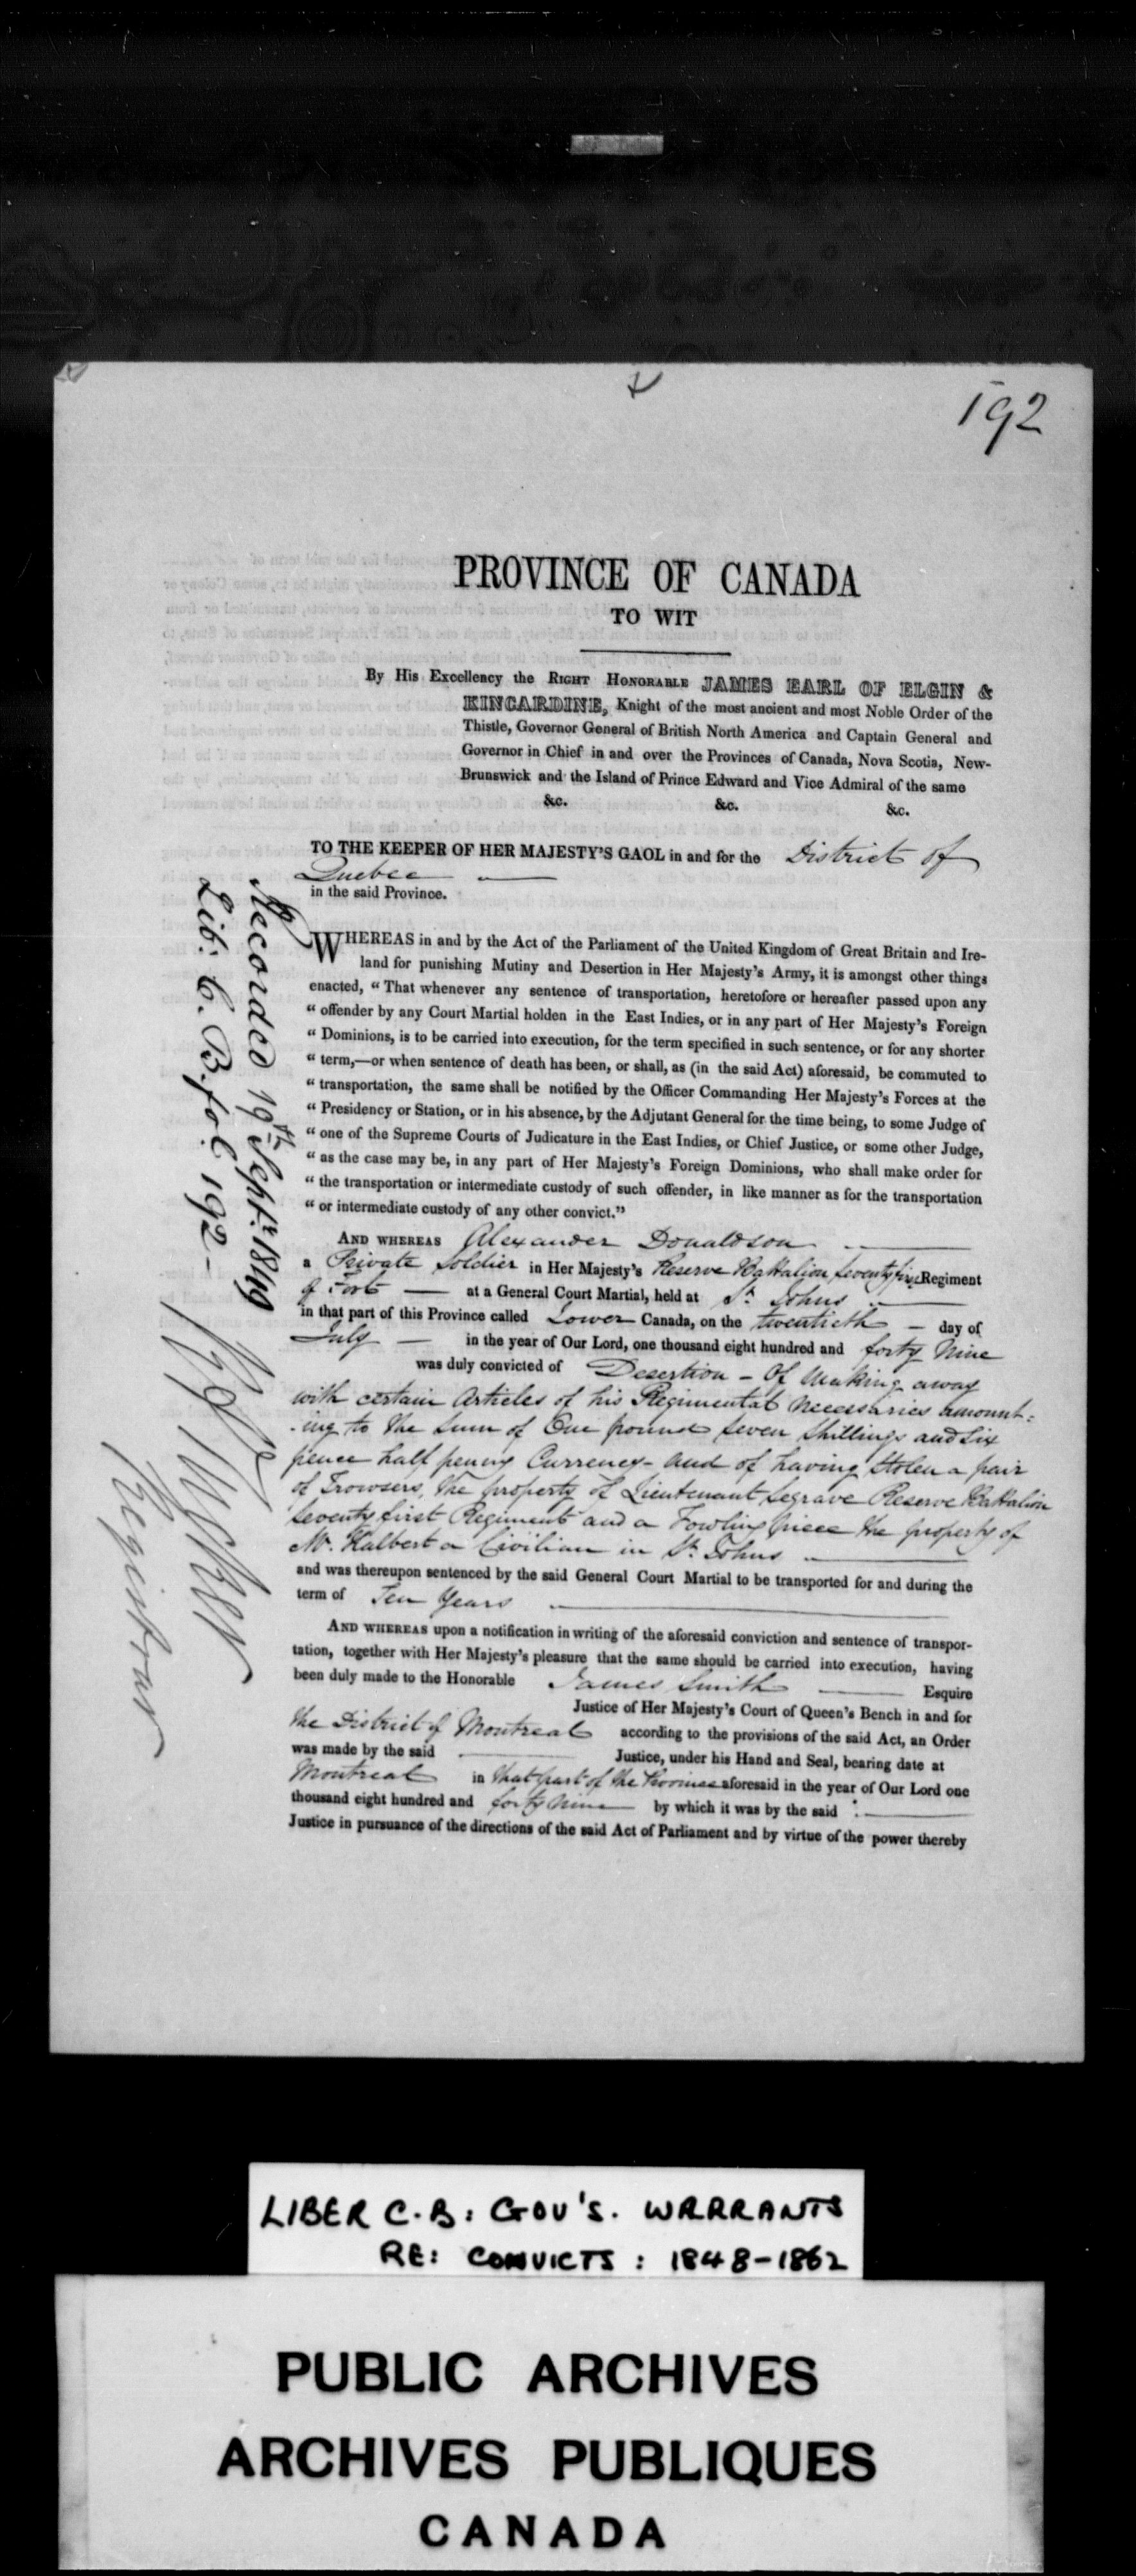 192
PROVINCE OF CANADA
TO WIT
By His Excellency the RIGHT HONORABLE JAMES EARL OF ELGIN &
KINCARDINE, Knight of the most ancient and most Noble Order of the
Thistle, Governor General of British North America and Captain General and
Governor in Chief in and over the Provinces of Canada, Nova Scotia, New-
Brunswick and the Island of Prince Edward and Vice Admiral of the same
&c. &c. &c.
TO THE KEEPER OF HER MAJESTY'S GAOL in and for the District of
Quebec —
in the said Province.
WHEREAS in and by the Act of the Parliament of the United Kingdom of Great Britain and Ire-
land for punishing Mutiny and Desertion in Her Majesty's Army, it is amongst other things
enacted, "That whenever any sentence of transportation, heretofore or hereafter passed upon any
"offender by any Court Martial holden in the East Indies, or in any part of Her Majesty's Foreign
"Dominions, is to be carried into execution, for the term specified in such sentence, or for any shorter
"term,—or when sentence of death has been, or shall, as (in the said Act) aforesaid, be commuted to
"transportation, the same shall be notified by the Officer Commanding Her Majesty's Forces at the
"Presidency or Station, or in his absence, by the Adjutant General for the time being, to some Judge of
"one of the Supreme Courts of Judicature in the East Indies, or Chief Justice, or some other Judge,
"as the case may be, in any part of Her Majesty's Foreign Dominions, who shall make order for
"the transportation or intermediate custody of such offender, in like manner as for the transportation
"or intermediate custody of any other convict."
AND WHEREAS Alexander Donaldson —
a Private Soldier in Her Majesty's Reserve Battalion Regiment
of Foot — at a General Court Martial, held at St. Johns —
in that part of this Province called Lower Canada, on the twentieth — day of
July — in the year of Our Lord, one thousand eight hundred and forty Nine
was duly convicted of Desertion - Of Making away
with certain Articles of his Regimental Necessaries amount=
-ing to the Sum of One pound Seven Shillings and Six
pence half penny Currency - and of having Stolen a pair
of Trowsers, the property of Lieutenant Segrave Reserve Battalion
Seventy first Regiment and a Fowling piece the property of
Mr. Halbert a Civilian in St. Johns —
and was thereupon sentenced by the said General Court Martial to be transported for and during the
term of Ten Years —
AND WHEREAS upon a notification in writing of the aforesaid conviction and sentence of transpor-
tation, together with Her Majesty's pleasure that the same should be carried into execution, having
been duly made to the Honorable James Smith — Esquire
Justice of Her Majesty's Court of Queen's Bench in and for
the District of Montreal according to the provisions of the said Act, an Order
was made by the said — Justice, under his Hand and Seal, bearing date at
Montreal in that part of the Province aforesaid in the year of Our Lord one
thousand eight hundred and forty Nine by which it was by the said —
Justice in pursuance of the directions of the said Act of Parliament and by virtue of the power thereby
Recorded 19th Septr. 1849
Lib: C. B. fol. 192 -
Registrar
LIBER C.B: GOV'S. WARRANTS
RE: CONVICTS: 1848-1862
PUBLIC ARCHIVES
ARCHIVES PUBLIQUES
CANADA